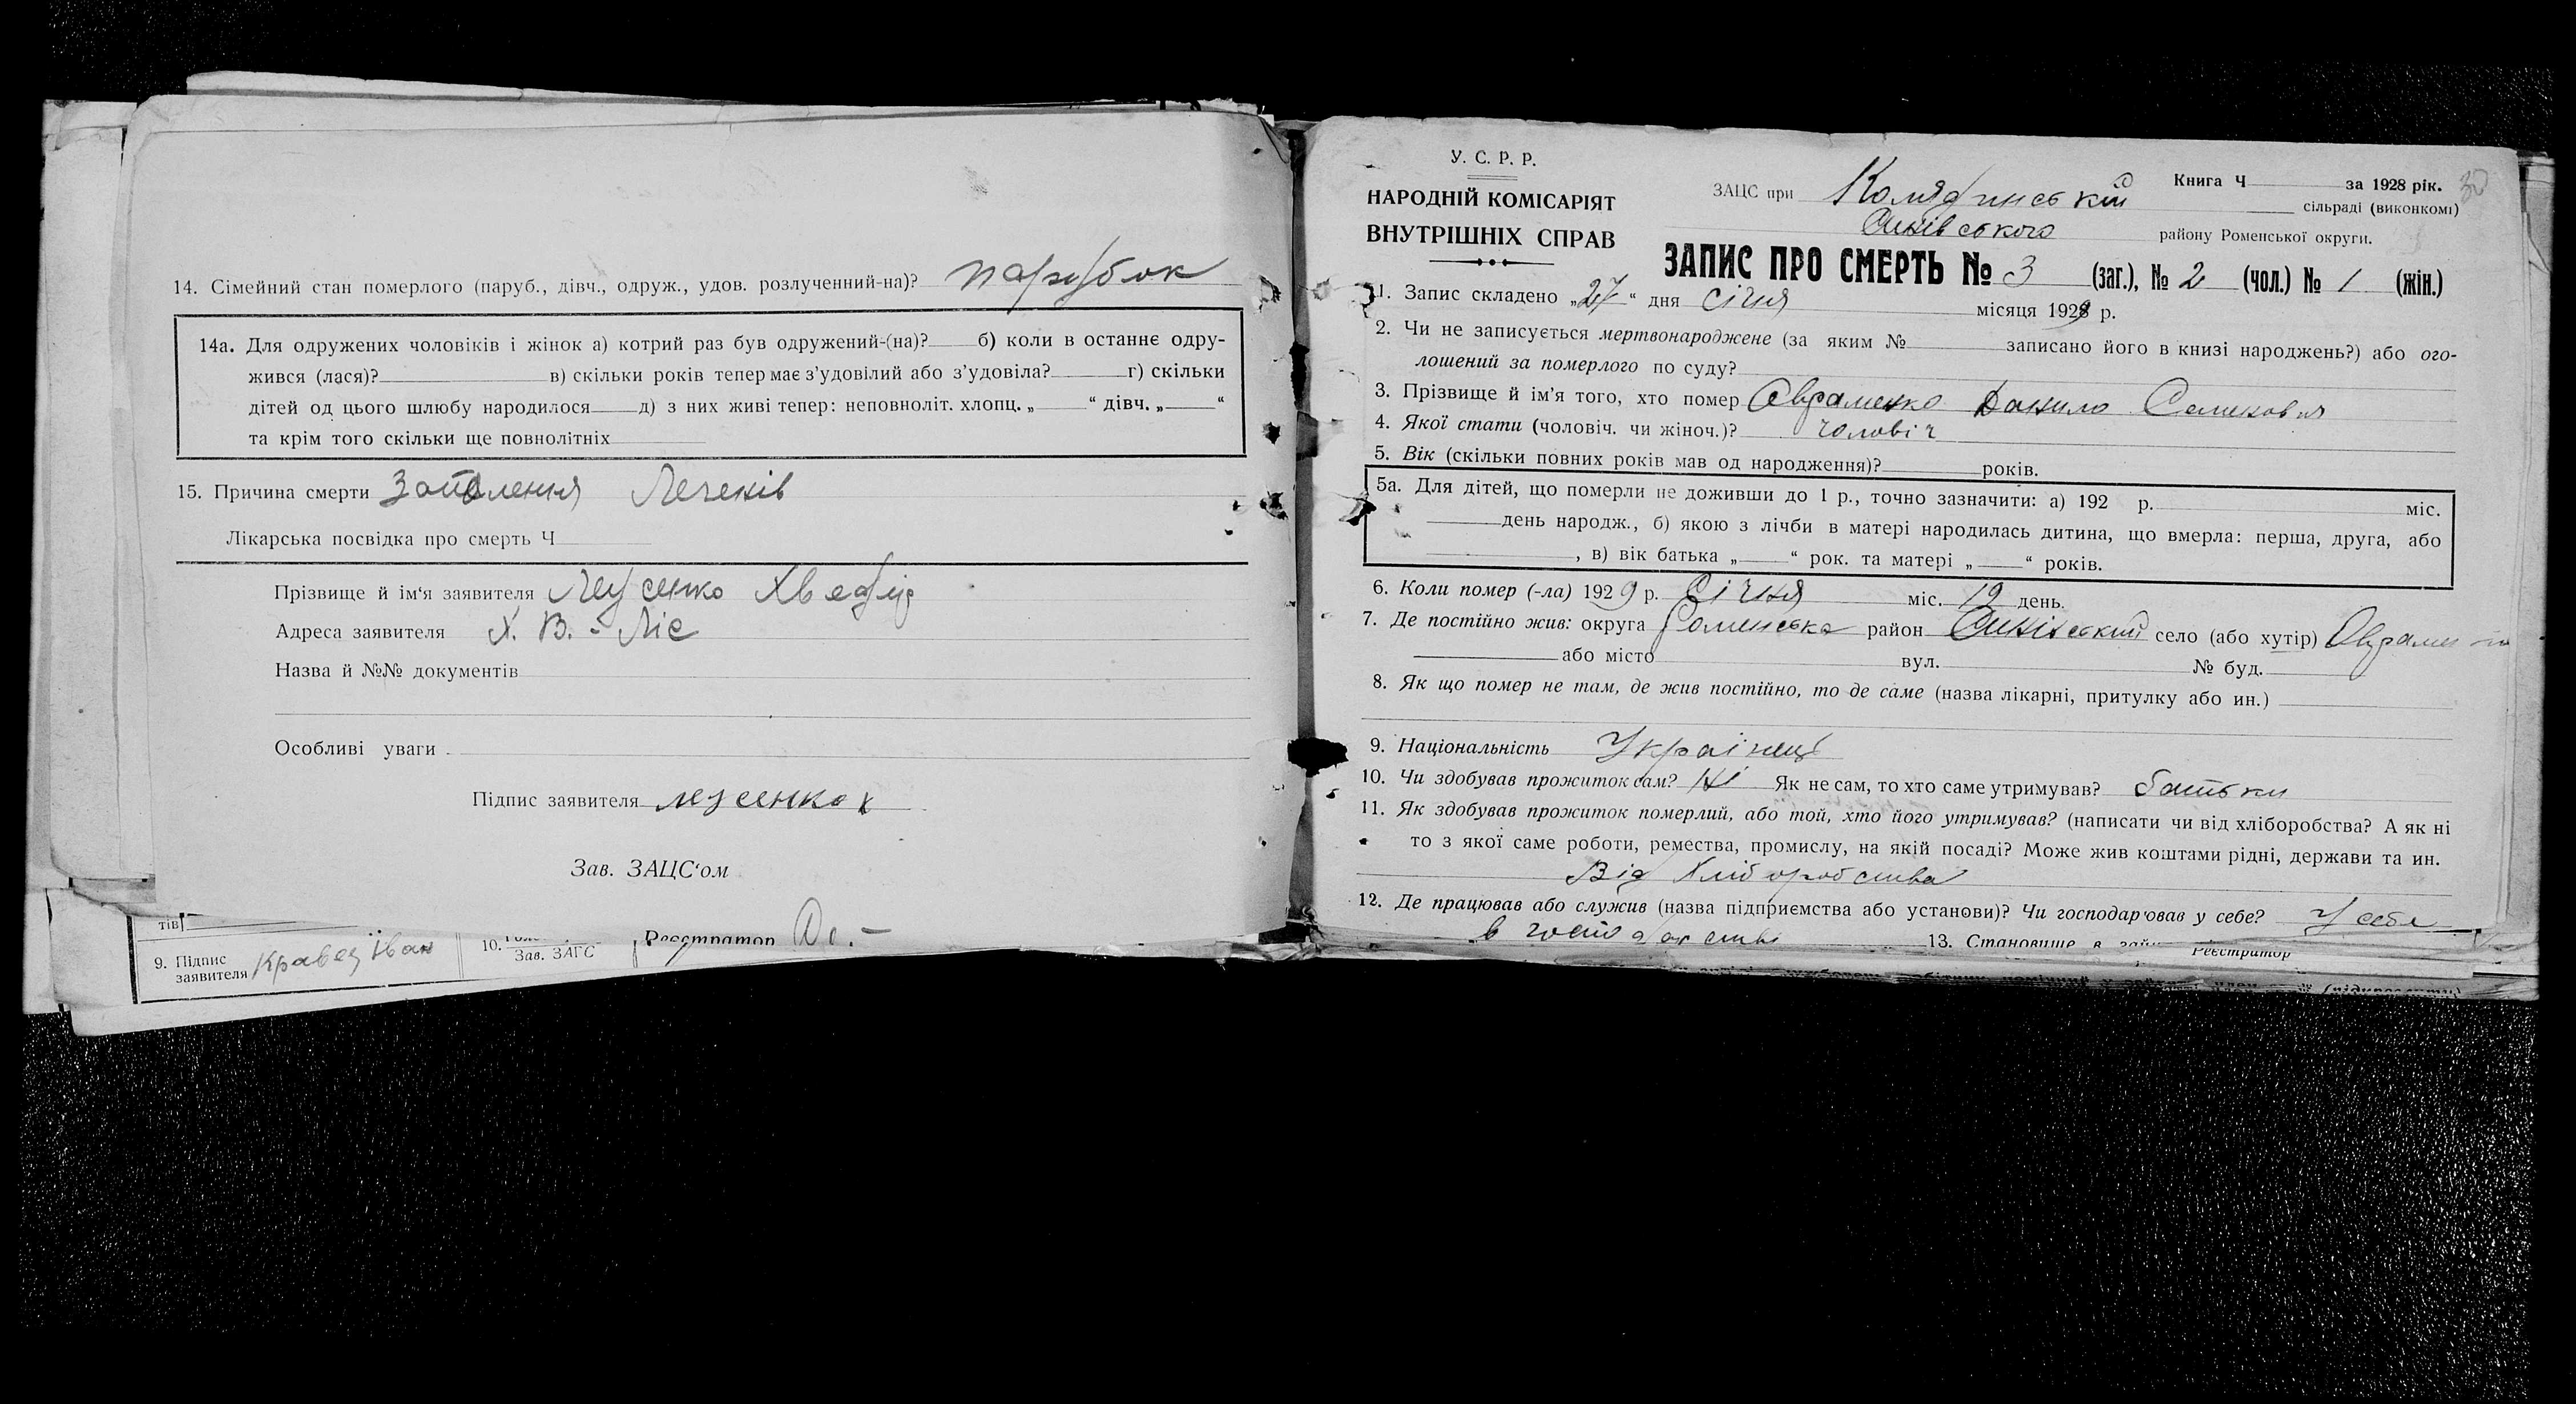 14. Сімейний стан померлого (паруб., дівч., одруж., удов. розлученний-на)? парубок
14а. Для одружених чоловіків і жінок а) котрий раз був одружений-(на)? б) коли в останнє одру-
жився (лася)? в) скільки років тепер має з’удовілий або з’удовіла? г) скільки
дітей од цього шлюбу народилося д) з них живі тепер: неповноліт. хлопц. „ “ дівч. „ “
та крім того скільки ще повнолітніх
15. Причина смерти Запалення Легенів
Лікарська посвідка про смерть Ч
Прізвище й ім‘я заявителя Хведір
Адреса заявителя Х. В. - Ліс
Назва й №№ документів
Особливі уваги
Підпис заявителя
Зав. ЗАЦС‘ом
Реєстратор
тів
9. Підпис заявителя Кравец Іван
10. Зав. ЗАГС
У. С. Р. Р.
НАРОДНІЙ КОМІСАРІЯТ
ВНУТРІШНІХ СПРАВ
ЗАЦС при Коляд Книга Ч за 1928 рік. 30
сільраді (виконкомі)
Синівського району Роменської округи.
ЗАПИС ПРО СМЕРТЬ № 3 (заг.), № 2 (чол.) № 1 (жін.)
1. Запис складено „27“ дня січня місяця 1929 р.
2. Чи не записується мертвонароджене (за яким № записано його в книзі народжень?) або ого-
лошений за померлого по суду?
3. Прізвище й ім’я того, хто помер Авраменко Данило Семенович
4. Якої стати (чоловіч. чи жіноч.)? чоловіч
5. Вік (скільки повних років мав од народження)? років.
5а. Для дітей, що померли не доживши до 1 р., точно зазначити: а) 192 р. міс.
день народж., б) якою з лічби в матері народилась дитина, що вмерла: перша, друга, або
, в) вік батька „ “ рок. та матері „ “ років.
6. Коли помер (-ла) 1929 р. Січня міс. 19 день.
7. Де постійно жив: округа Роменська район Синівський село (або хутір)
або місто вул. № буд.
8. Як що помер не там, де жив постійно, то де саме (назва лікарні, притулку або ин.)
9. Національність Українец
10. Чи здобував прожиток сам? Ні Як не сам, то хто саме утримував? батьки
11. Як здобував прожиток померлий, або той, хто його утримував? (написати чи від хліборобства? А як ні
то з якої саме роботи, ремества, промислу, на якій посаді? Може жив коштами рідні, держави та ин.
Від хліборобства
12. Де працював або служив (назва підприємства або установи)? Чи господарював у себе? У себе
в господарстві 13. Становище в
Реєстратор